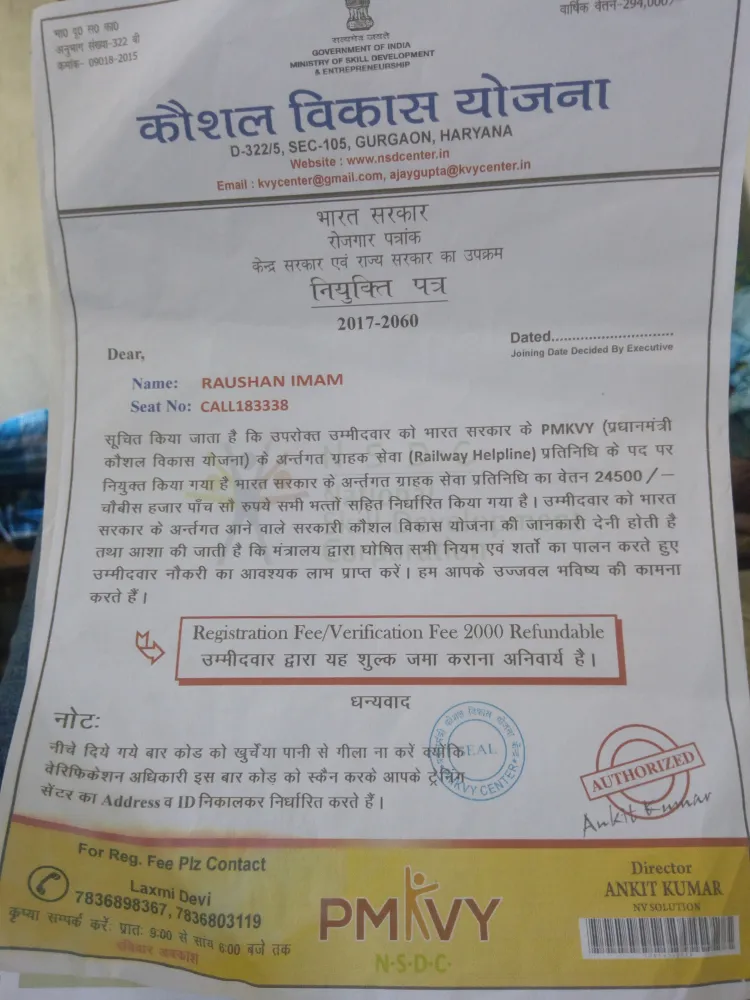 भा० पू० स० का०
अनुभाग संख्या-322 बी
क्रमांक- 09018-2015
वार्षिक वेतन-294,000/-
सत्यमेव जयते
GOVERNMENT OF INDIA
MINISTRY OF SKILL DEVELOPMENT
& ENTREPRENEURSHIP
कौशल विकास योजना
D-322/5, SEC-105, GURGAON, HARYANA
Website : www.nsdcenter.in
Email : kvycenter@gmail.com, ajaygupta@kvycenter.in
भारत सरकार
रोजगार पत्रांक
केन्द्र सरकार एवं राज्य सरकार का उपक्रम
नियुक्ति पत्र
2017-2060
Dated..............................
Joining Date Decided By Executive
Dear,
Name: RAUSHAN IMAM
Seat No: CALL183338
सूचित किया जाता है कि उपरोक्त उम्मीदवार को भारत सरकार के PMKVY (प्रधानमंत्री
कौशल विकास योजना) के अर्न्तगत ग्राहक सेवा (Railway Helpline) प्रतिनिधि के पद पर
नियुक्त किया गया है भारत सरकार के अर्न्तगत ग्राहक सेवा प्रतिनिधि का वेतन 24500 /–
चौबीस हजार पाँच सौ रुपये सभी भत्तों सहित निर्धारित किया गया है। उम्मीदवार को भारत
सरकार के अर्न्तगत आने वाले सरकारी कौशल विकास योजना की जानकारी देनी होती है
तथा आशा की जाती है कि मंत्रालय द्वारा घोषित सभी नियम एवं शर्तो का पालन करते हुए
उम्मीदवार नौकरी का आवश्यक लाभ प्राप्त करें। हम आपके उज्जवल भविष्य की कामना
करते हैं।
Registration Fee/Verification Fee 2000 Refundable
उम्मीदवार द्वारा यह शुल्क जमा कराना अनिवार्य है।
धन्यवाद
नोटः
नीचे दिये गये बार कोड को खुर्चेया पानी से गीला ना करें क्योंकि
वेरिफिकेशन अधिकारी इस बार कोड़ को स्कैन करके आपके ट्रेनिंग
सेंटर का Address व ID निकालकर निर्धारित करते हैं।
SEAL
PMKVY CENTER
AUTHORIZED
Ankit Kumar
For Reg. Fee Plz Contact
Laxmi Devi
7836898367, 7836803119
कृप्या सम्पर्क करें: प्रातः 9:00 से सांय 6:00 बजे तक
रविवार अवकाश
PMKVY
N·S·D·C·
Director
ANKIT KUMAR
NV SOLUTION